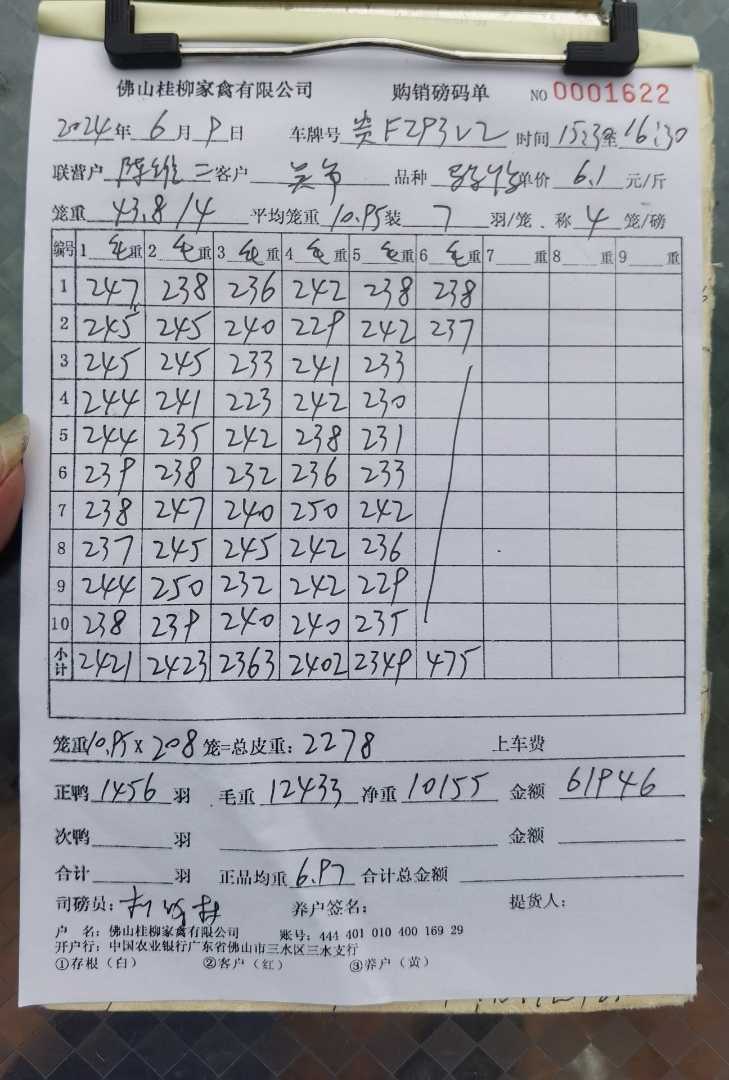 佛山桂柳家禽有限公司 购销磅码单 NO 0001622
2024年 6月 9日 车牌号 贵F293V2 时间 15:3至16:30
联营户 陈维二 客户 吴 品种 单价 6.1 元/斤
笼重 43.8/4 平均笼重 10.95 装 7 羽/笼、称 4 笼/磅
编号 1 毛重 2 毛重 3 毛重 4 毛重 5 毛重 6 毛重 7 重 8 重 9 重
1 247 238 236 242 238 238
2 245 245 240 229 242 237
3 245 245 233 241 233
4 244 241 223 242 230
5 244 235 242 238 231
6 239 238 232 236 233
7 238 247 240 250 242
8 237 245 245 242 236
9 244 250 232 242 229
10 238 239 240 240 235
小计 2421 2423 2363 2402 2349 475
笼重 10.95 x 208 笼=总皮重: 2278 上车费
正鸭 1456 羽 毛重 12433 净重 10155 金额 61946
次鸭 羽 金额
合计 羽 正品均重 6.97 合计总金额
司磅员: 养户签名: 提货人:
户 名: 佛山桂柳家禽有限公司 账号: 444 401 010 400 169 29
开户行: 中国农业银行广东省佛山市三水区三水支行
①存根（白） ②客户（红） ③养户（黄）